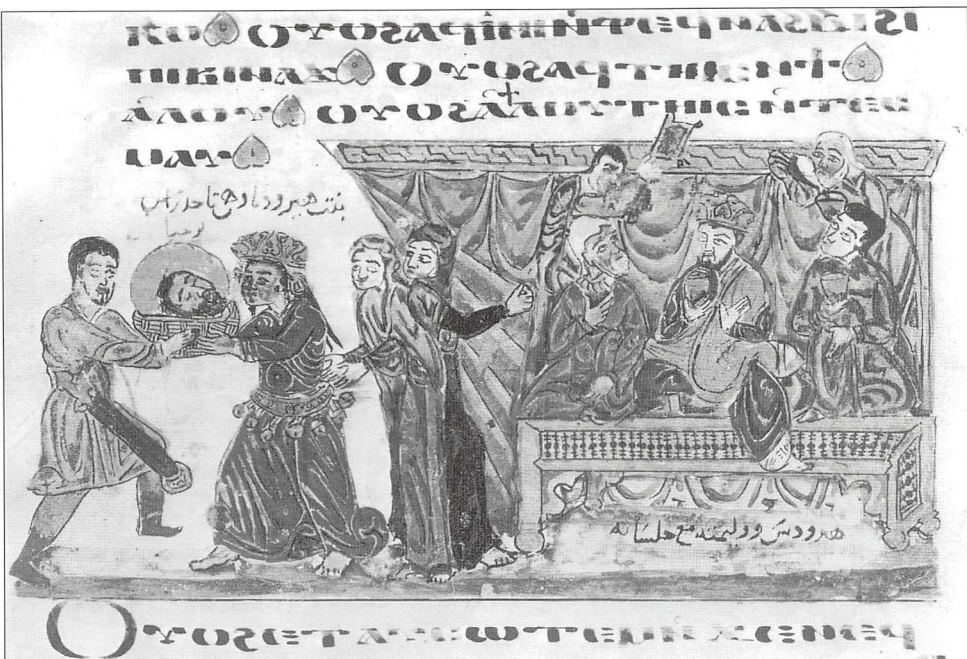 ⲕⲟ ⲟⲩⲟϩⲁϥⲓⲛⲓⲛ̀ⲧⲉϥⲛⲁϩⲃⲓϩⲓ
ⲡⲓⲃⲓⲛⲁϫ ⲟⲩⲟϩⲁϥⲧⲏⲓⲥⲛ̀ϯ
ⲁ̀ⲗⲟⲩ ⲟⲩⲟϩⲁϯⲁ̀ⲗⲟⲩⲧⲏⲓⲥⲛ̀ⲧⲉⲥ
ⲙⲁⲩ
بنت هيروديا وهي تاخد راس
يوحنا
هيرودس ووليمته مع جلسائه
ⲟⲩⲟϩⲉⲧⲁⲩⲥⲱⲧⲉⲙⲛ̀ϫⲉⲛⲉϥ